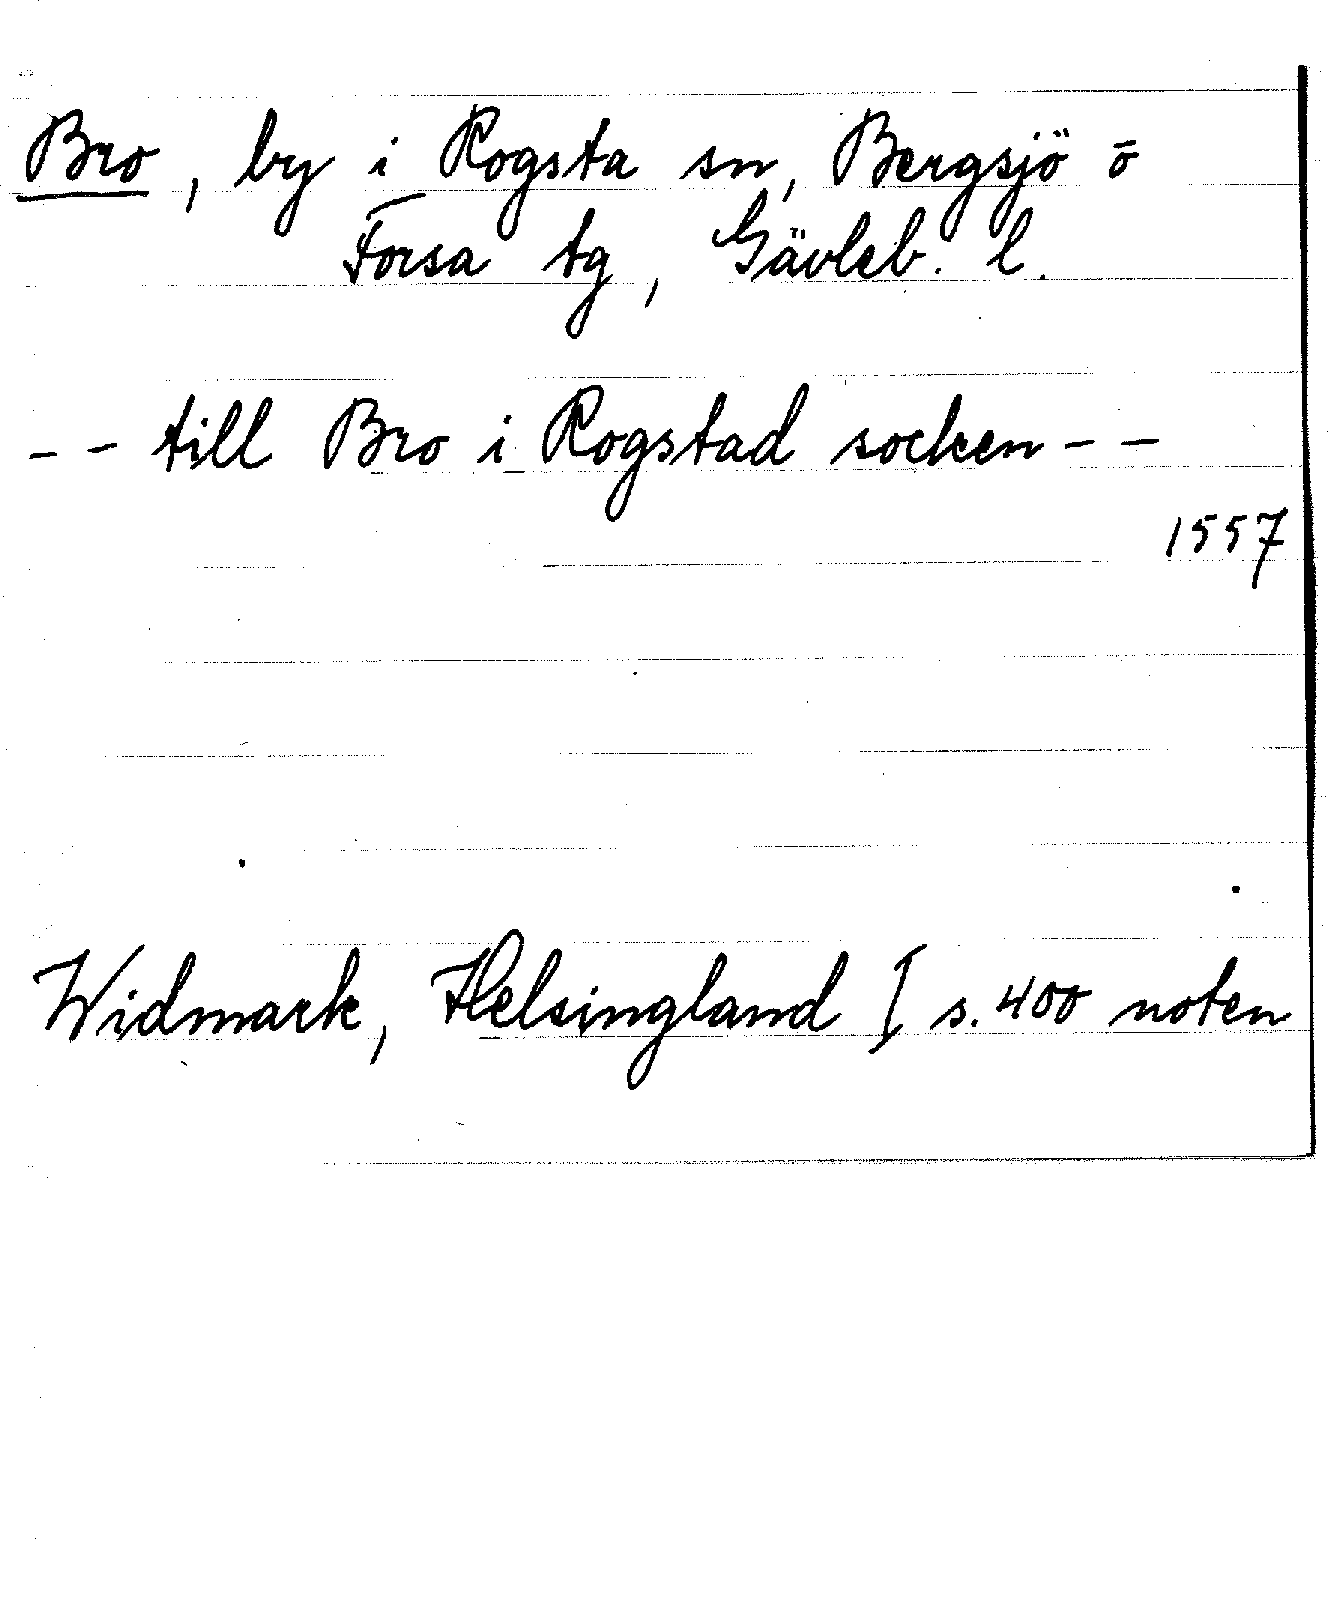 Bro, by i Rogsta sn, Bergsjö o
Forsa tg, Gävleb. l.
-- till Bro i Rogstad socken --
1557
Widmark, Helsingland I s. 400 noten